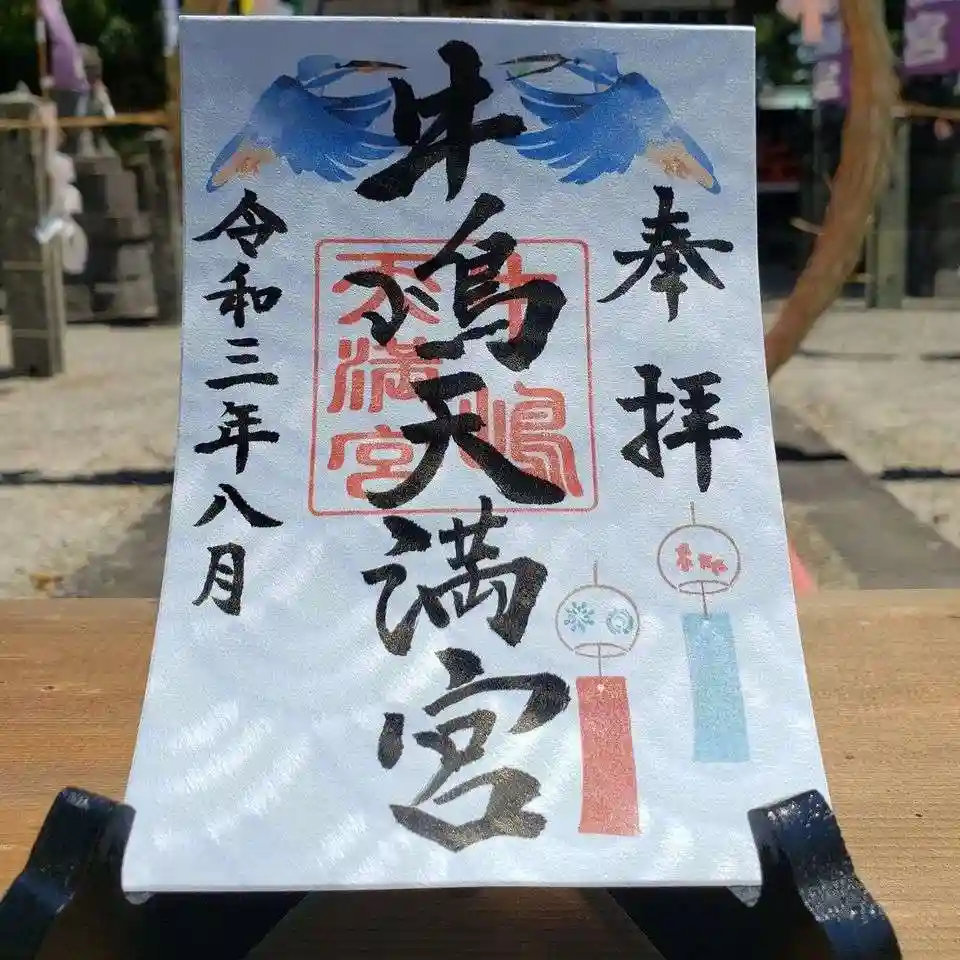 奉拝
牛嶋天満宮
牛嶋
天満宮
令和三年八月
宮